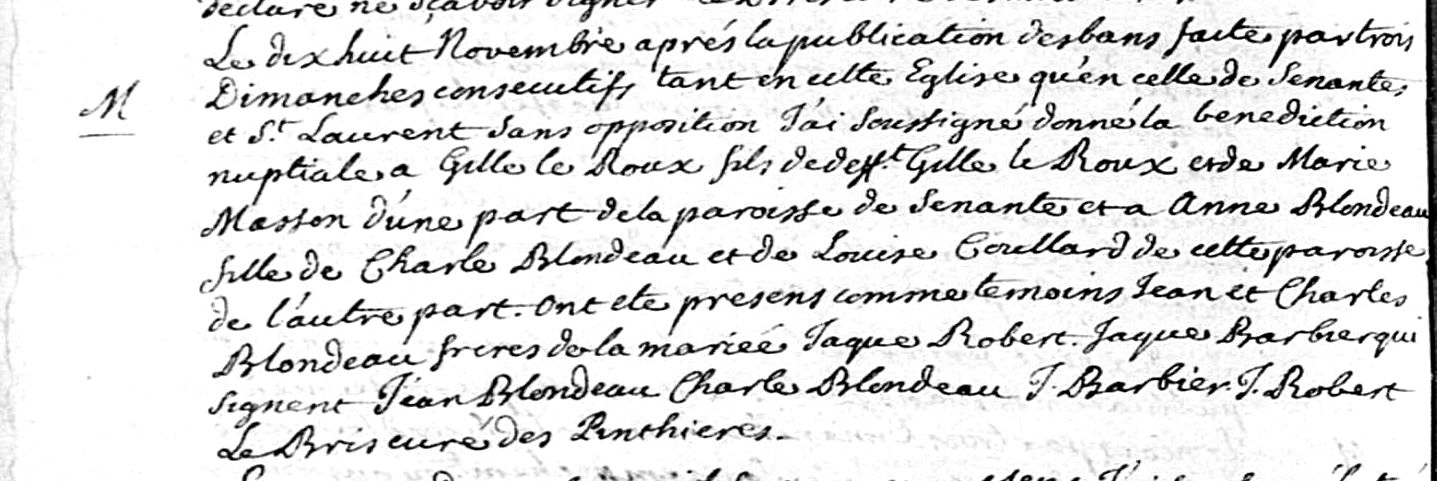 declare ne sçavoir signer
Le dix huit Novembre aprés la publication des bans faite par trois
M
Dimanches consecutifs tant en cette Eglise qu'en celle de Senantes
et St. Laurent sans opposition J'ai soussigné donné la benediction
nuptiale a Gille le Roux fils de defft. Gille le Roux et de Marie
Masson d'une part de la paroisse de Senante et a Anne Blondeau
fille de Charle Blondeau et de Louise Coullard de cette paroisse
de l'autre part. ont ete presens comme temoins Jean et Charles
Blondeau freres de la mariée Jaque Robert. Jaque Barbier qui
signent Jean Blondeau Charle Blondeau J. Barbier. J. Robert
Le Bris curé des Pinthieres.